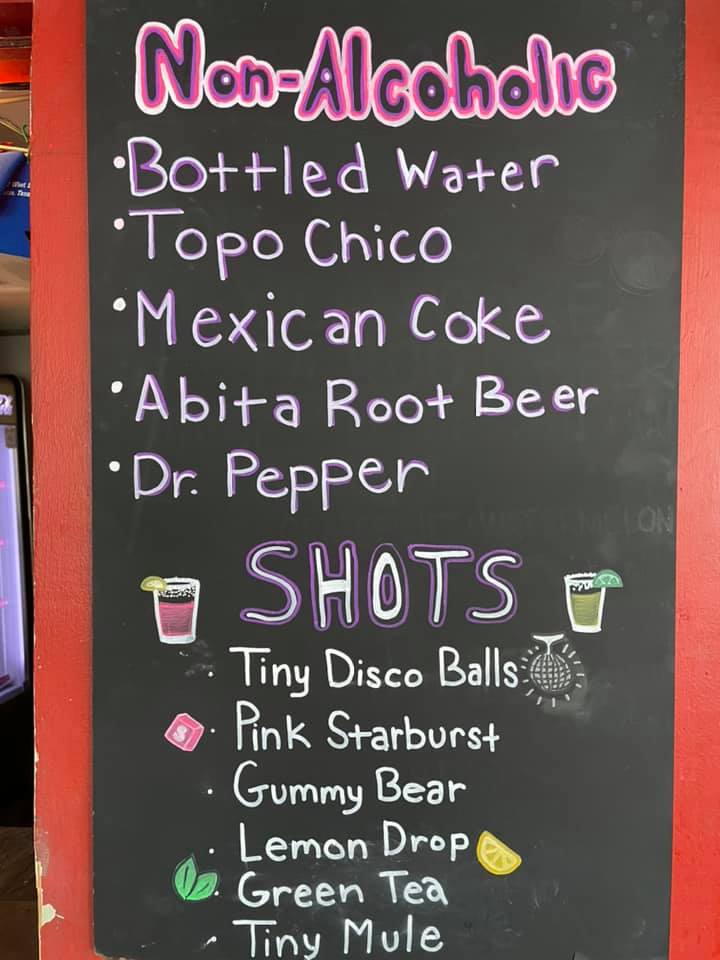 Non-Alcoholic
•Bottled Water
•Topo Chico
•Mexican Coke
•Abita Root Beer
•Dr. Pepper
SHOTS
• Tiny Disco Balls
S • Pink Starburst
• Gummy Bear
• Lemon Drop
• Green Tea
• Tiny Mule